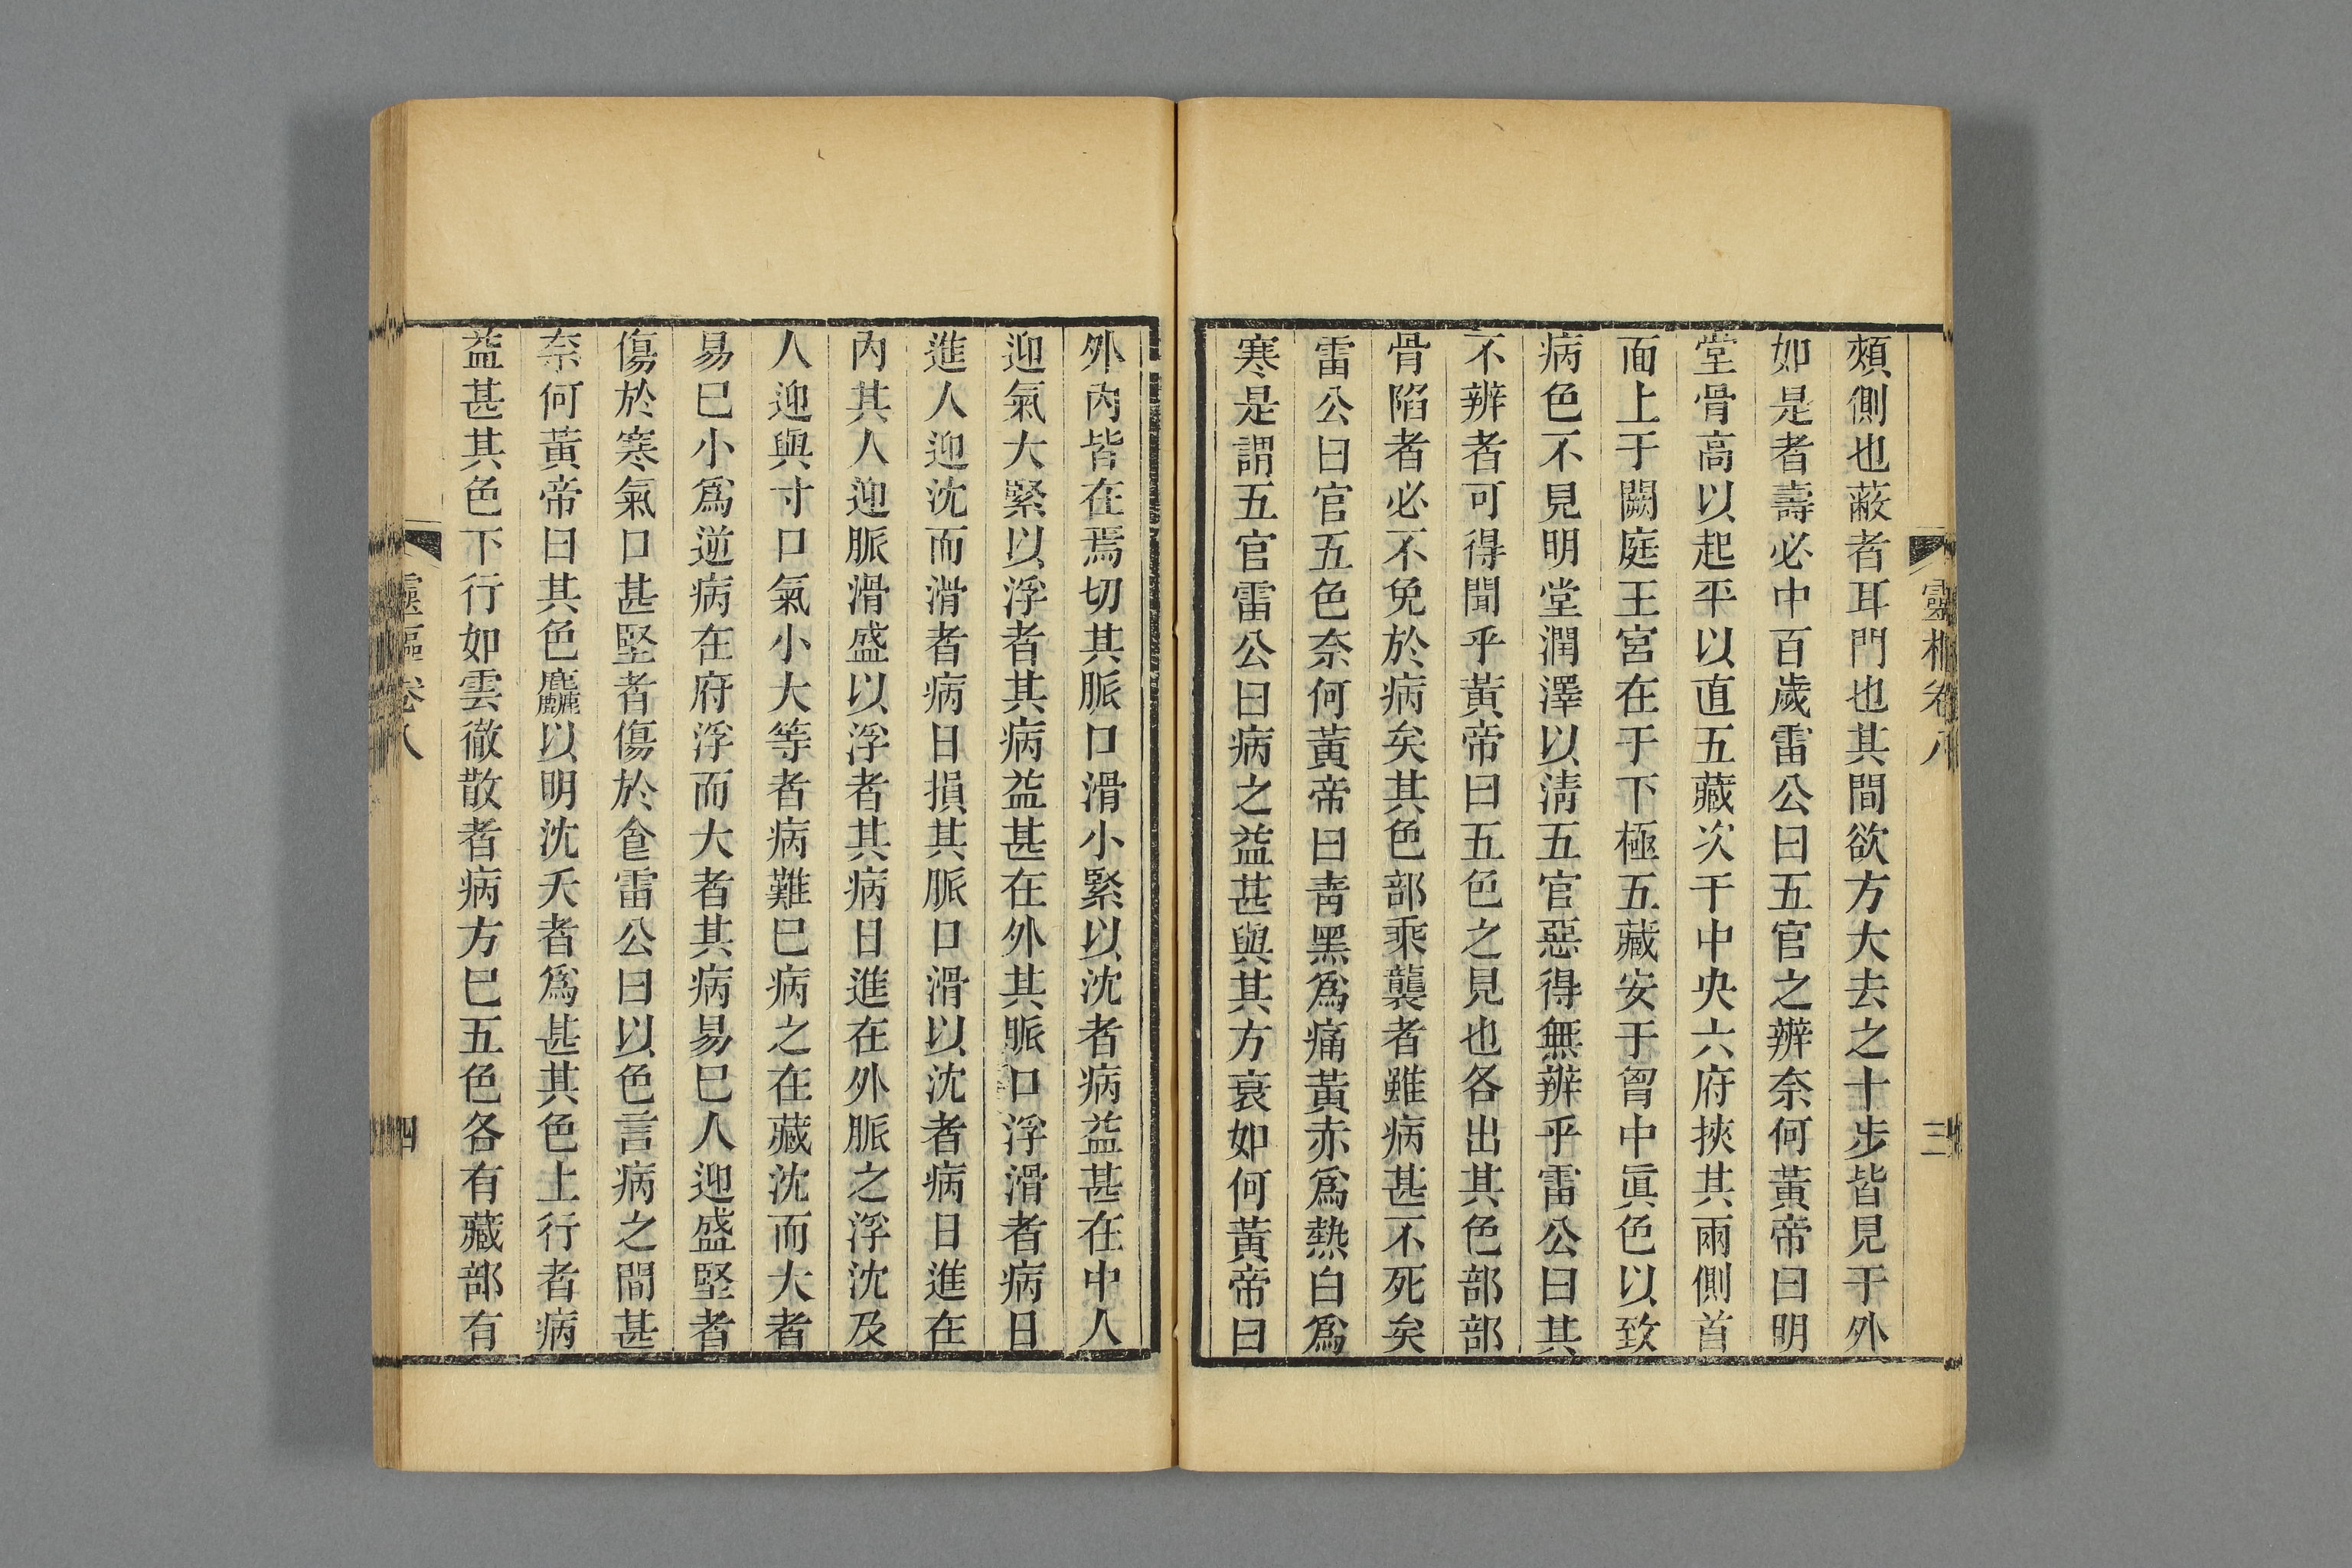 靈樞卷八
三
頰側也蔽者耳門也其間欲方大去之十步皆見于外
如是者壽必中百歲雷公曰五官之辨奈何黃帝曰明
堂骨高以起平以直五藏次于中央六府挾其兩側首
面上于闕庭王宮在于下極五藏安于胷中眞色以致
病色不見明堂潤澤以淸五官惡得無辨乎雷公曰其
不辨者可得聞乎黃帝曰五色之見也各出其色部部
骨陷者必不免於病矣其色部乘襲者雖病甚不死矣
雷公曰官五色奈何黃帝曰靑黑爲痛黃赤爲熱白爲
寒是謂五官雷公曰病之益甚與其方衰如何黃帝曰
外內皆在焉切其脈口滑小緊以沈者病益甚在中人
迎氣大緊以浮者其病益甚在外其脈口浮滑者病日
進人迎沈而滑者病日損其脈口滑以沈者病日進在
內其人迎脈滑盛以浮者其病日進在外脈之浮沈及
人迎與寸口氣小大等者病難巳病之在藏沈而大者
易巳小爲逆病在府浮而大者其病易巳人迎盛堅者
傷於寒氣口甚堅者傷於食雷公曰以色言病之間甚
奈何黃帝曰其色麤以明沈夭者爲甚其色上行者病
益甚其色下行如雲徹散者病方巳五色各有藏部有
靈樞卷八
四